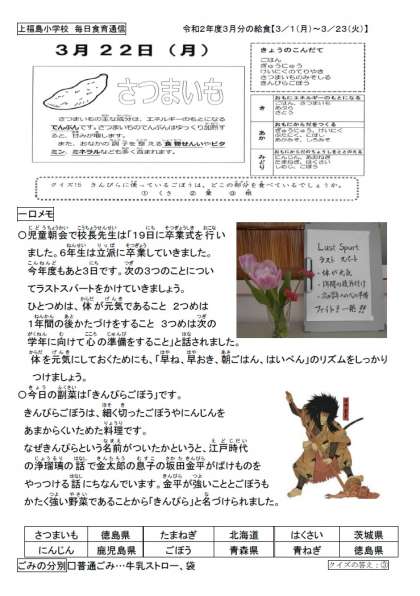 上福島小学校 毎日食育通信
令和2年度3月分の給食【3／1（月）～3／23（火）】
3月22日（月）
さつまいも
さつまいもの主な成分は、エネルギーのもとになる
でんぷんです。さつまいものでんぷんはゆっくり加熱す
ると、甘みが増します。
また、おなかの調子を整える食物せんいやビタ
ミン、ミネラルなども多くふくまれます。
きょうのこんだて
ごはん
ぎゅうにゅう
けいにくのてりやき
さつまいものみそしる
きんぴらごぼう
き
おもにエネルギーのもとになる
ごはん、さつまいも
あぶら
さとう
あか
おもにからだをつくる
ぎゅうにゅう、けいにく
みどり
にんじん、あおねぎ
たまねぎ、はくさい
しめじ、ごぼう
クイズ15 きんぴらに使っているごぼうは、どこの部分を食べているでしょうか。
① くき ② 葉 ③ 根
一口メモ
○児童朝会で校長先生は「19日に卒業式を行い
ました。6年生は立派に卒業していきました。
今年度もあと3日です。次の3つのことについ
てラストスパートをかけていきましょう。
ひとつめは、体が元気であること 2つめは
1年間の後かたづけをすること 3つめは次の
学年に向けて心の準備をすること」と話されました。
体を元気にしておくためにも、「早ね、早おき、朝ごはん、はいべん」のリズムをしっかり
つけましょう。
Last Spurt
ラスト スパート
・体が元気
・1年間の後片付け
ファイト！一発！！
○今日の副菜は「きんぴらごぼう」です。
きんぴらごぼうは、細く切ったごぼうやにんじんを
あまからくいためた料理です。
なぜきんぴらという名前がついたかというと、江戸時代
の浄瑠璃の話で金太郎の息子の坂田金平がばけものを
やっつける話にちなんでいます。金平が強いこととごぼうも
かたく強い野菜であることから「きんぴら」と名づけられました。
さつまいも 徳島県 たまねぎ 北海道 はくさい 茨城県
にんじん 鹿児島県 ごぼう 青森県 青ねぎ 徳島県
ごみの分別 □普通ごみ…牛乳ストロー、袋
クイズの答え：③